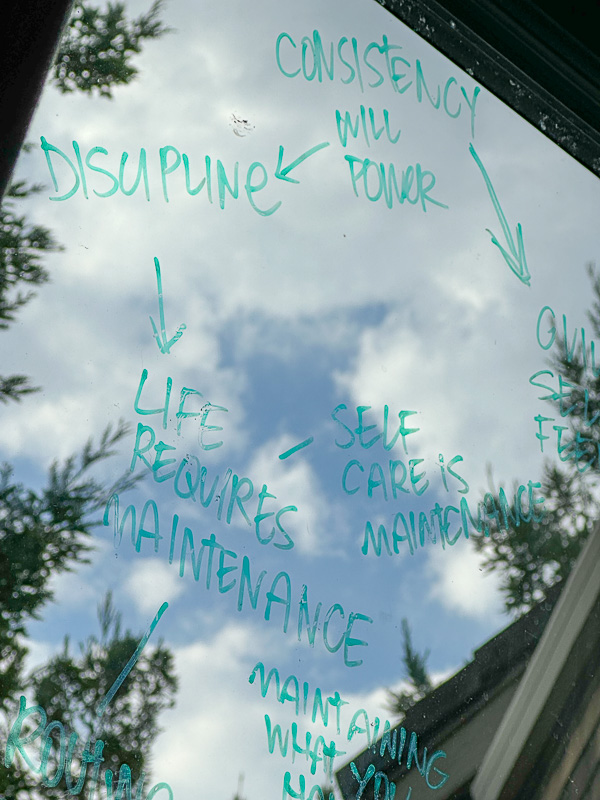 CONSISTENCY
WILL
POWER
DISCIPLINE
LIFE
REQUIRES
MAINTENANCE
SELF
CARE IS
MAINTENANCE
MAINTAINING
WHAT
YOU